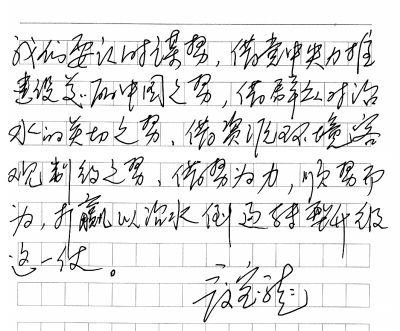 我们要认时谋势，借党中央力推
建设美丽中国之势，借群众对治
水的关切之势、借资源环境客
观制约之势，借势为力，顺势而
为，打赢以治水倒逼转型升级
这一仗。